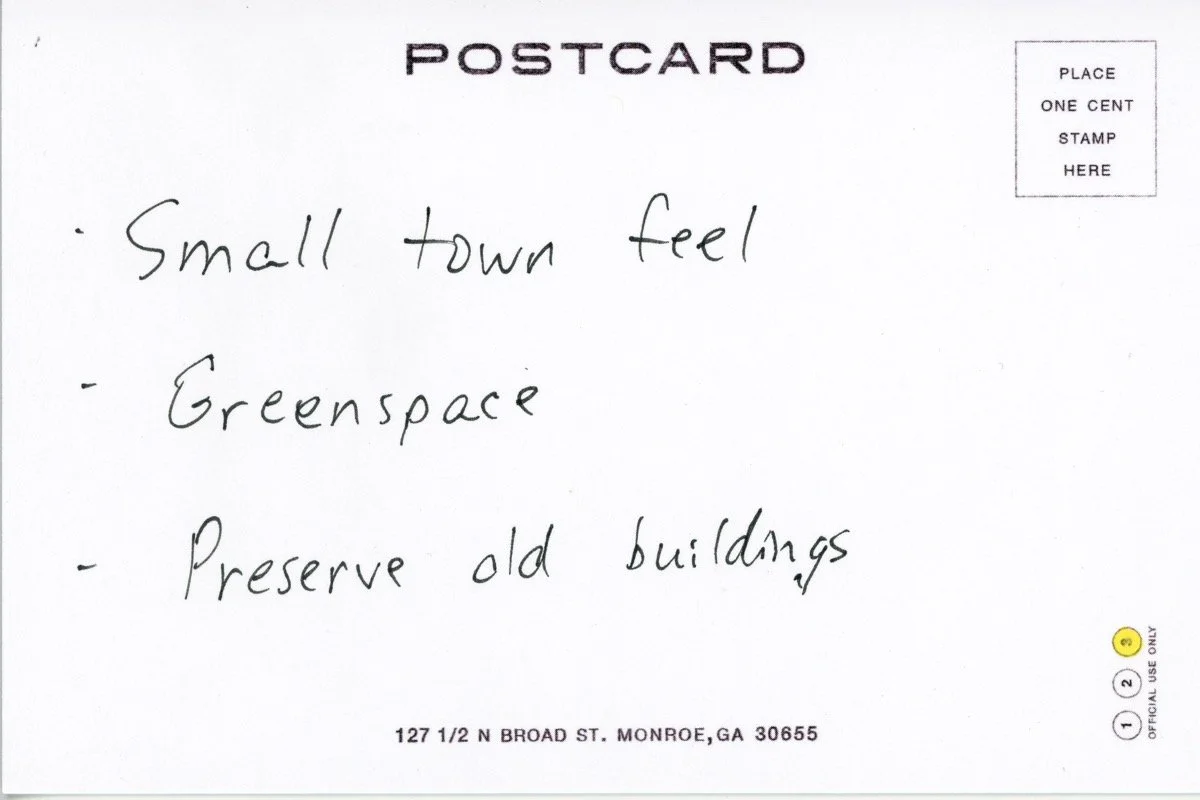 POSTCARD
PLACE
ONE CENT
STAMP
HERE
· Small town feel
- Greenspace
- Preserve old buildings
127 1/2 N BROAD ST. MONROE, GA 30655
1 2 3
OFFICIAL USE ONLY